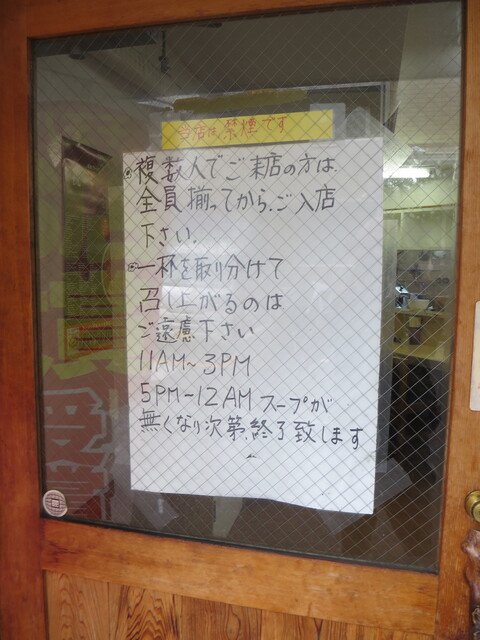 当店は禁煙です
◎複数人でご来店の方は
全員揃ってから、ご入店
下さい。
◎一杯を取り分けて
召し上がるのは
ご遠慮下さい
11AM～3PM
5PM～12AM スープが
無くなり次第、終了致します
受賞